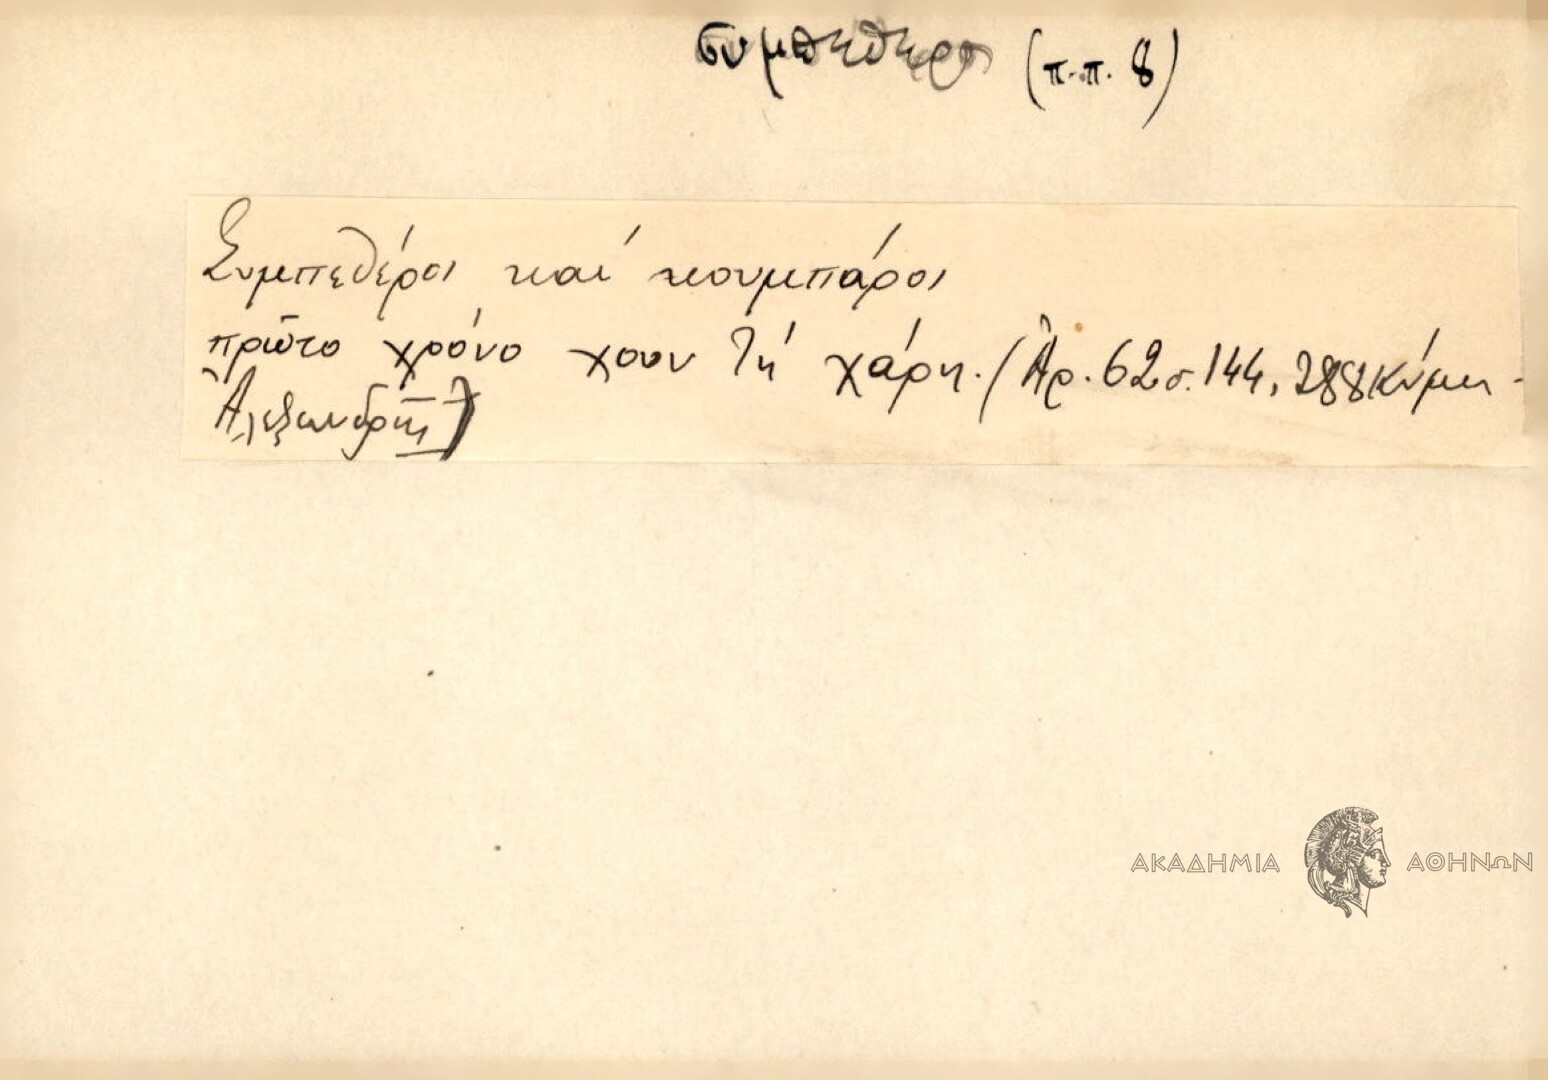 συμπέθερος (π.π. 8)
Συμπεθέροι καί κουμπάροι
πρῶτο χρόνο χουν τή χάρη. (Ἀρ. 62 σ. 144, 288 Κύμη -
ΑΚΑΔΗΜΙΑ ΑΘΗΝΩΝ